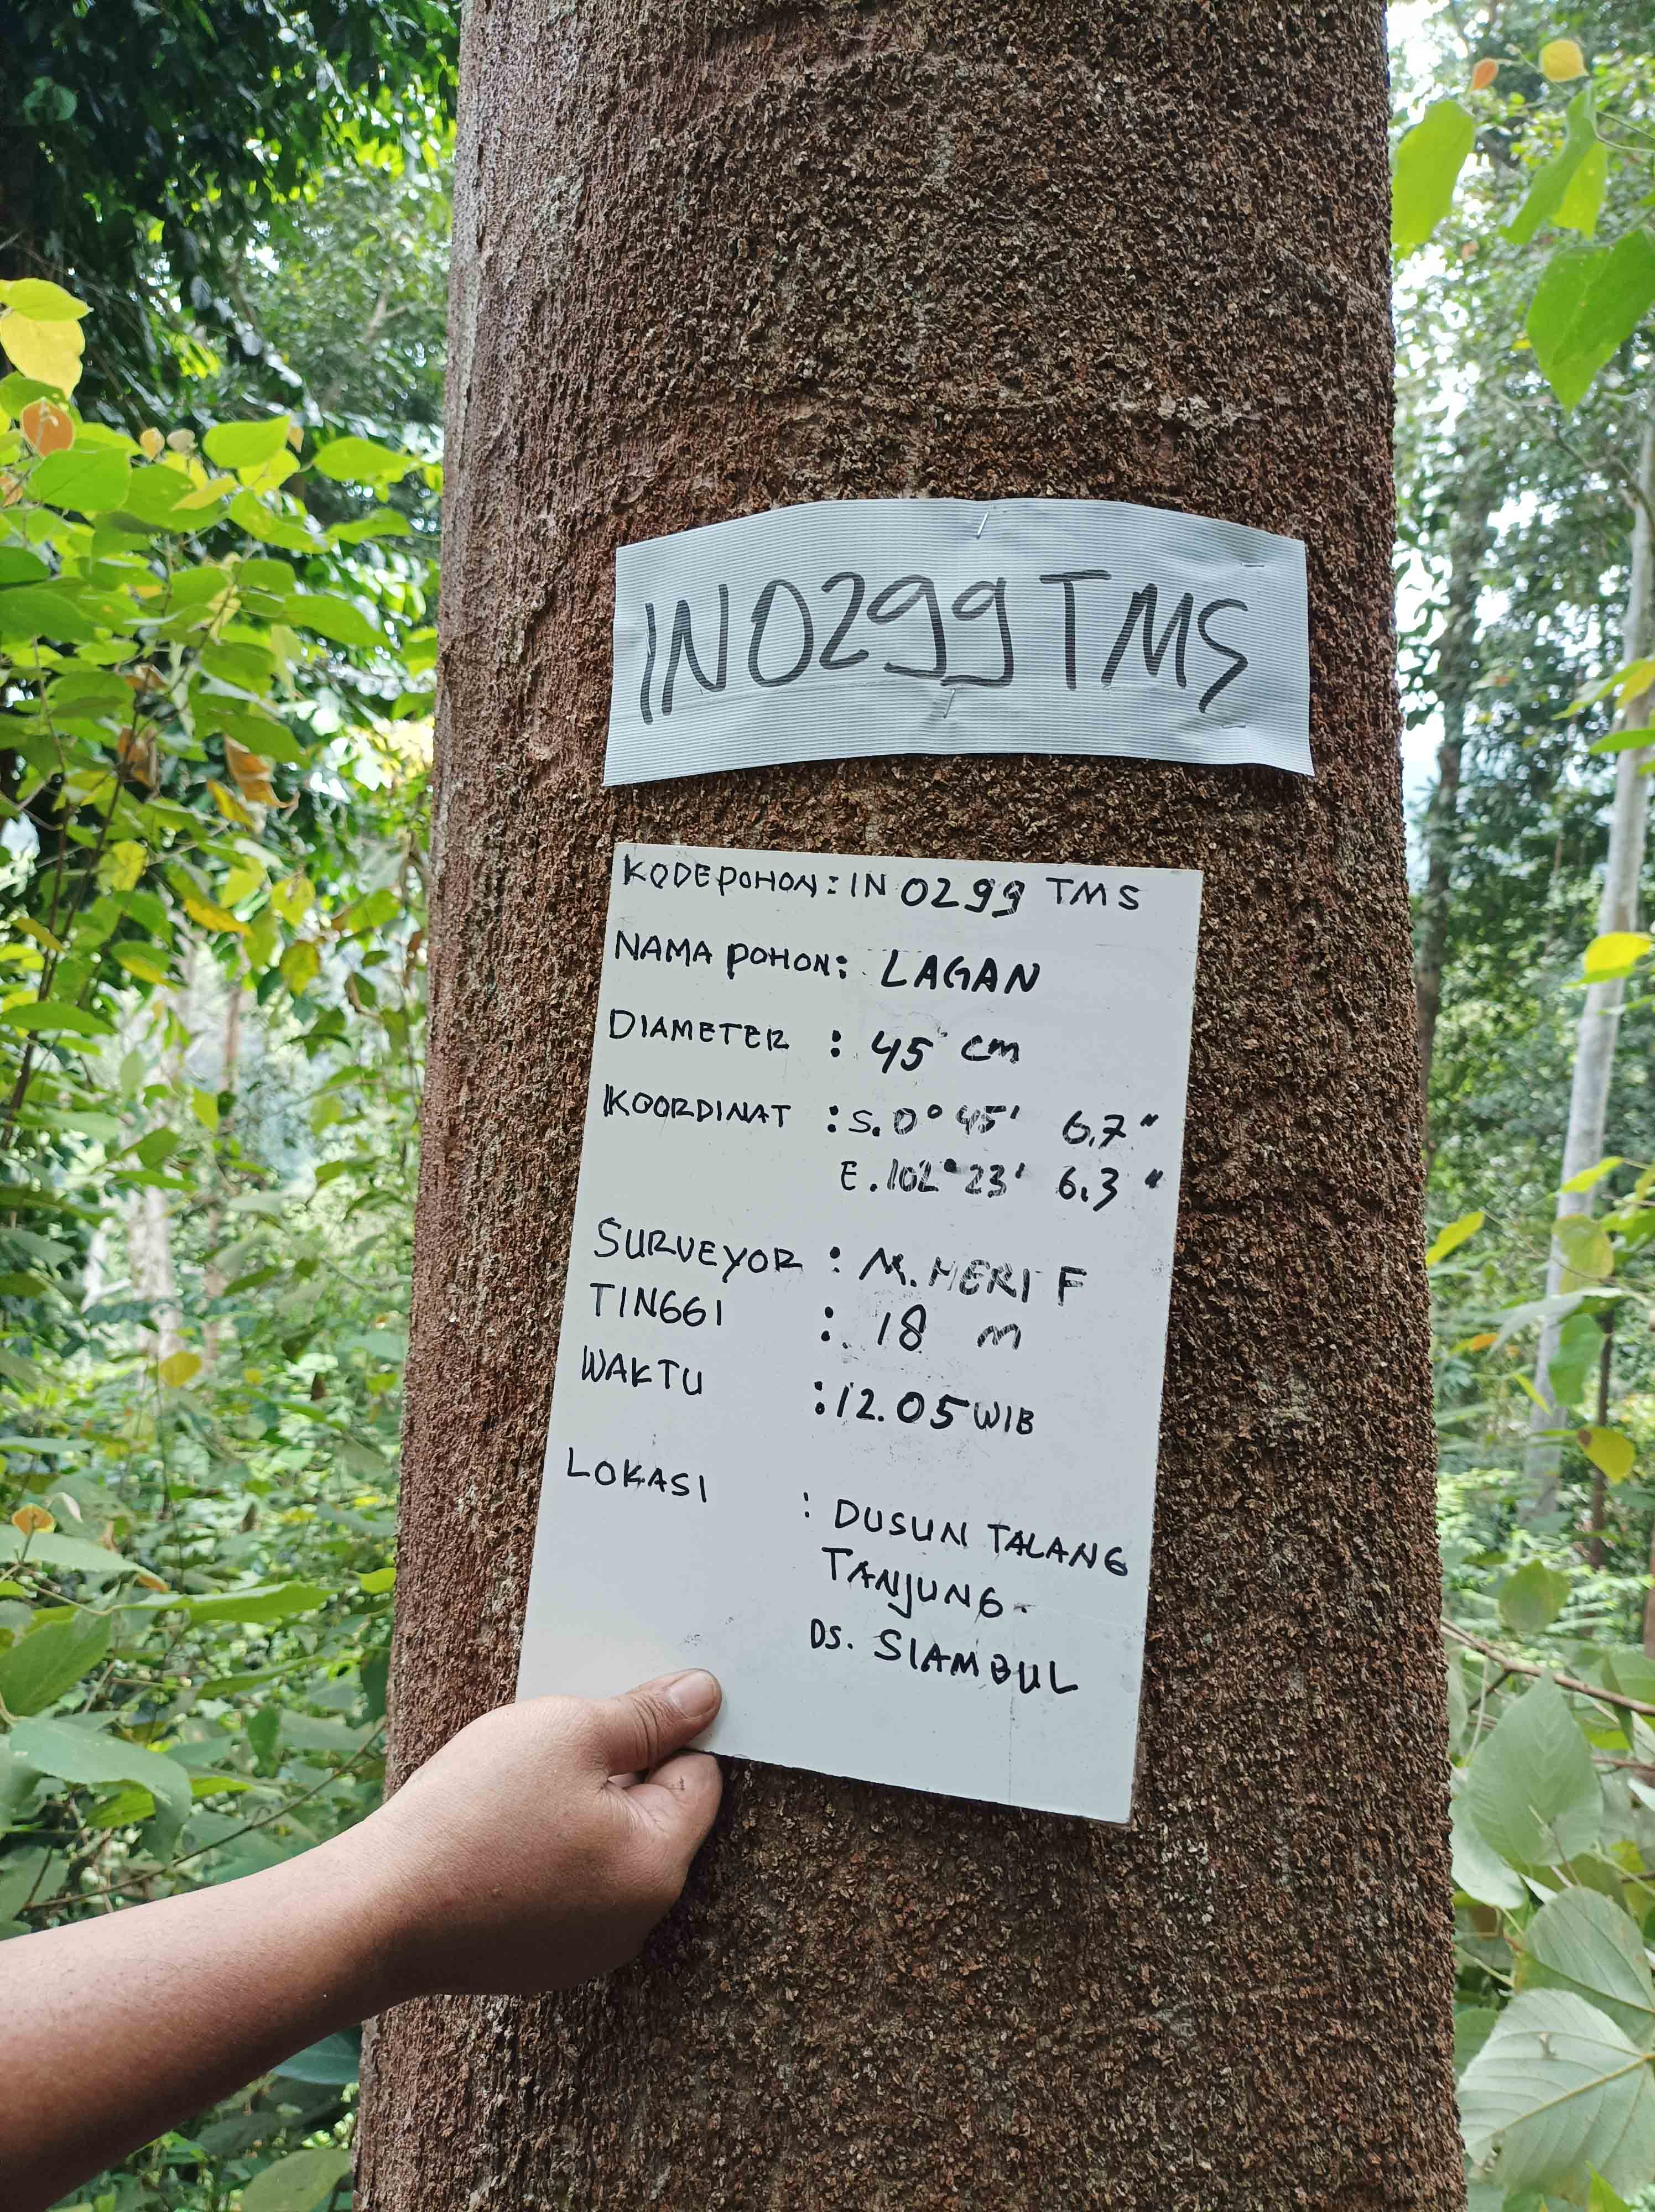 IN0299 TMS
KODE POHON : IN 0299 TMS
NAMA POHON : LAGAN
DIAMETER : 45 cm
KOORDINAT : S. 0° 45' 6.7"
E. 102° 23' 6.3"
SURVEYOR : M. HERI F
TINGGI : 18 m
WAKTU : 12.05 WIB
LOKASI : DUSUN TALANG
TANJUNG.
DS. SIAMBUL